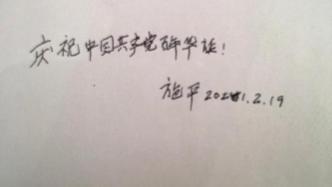 庆祝中国共产党百年华诞!
施平 2021.2.19